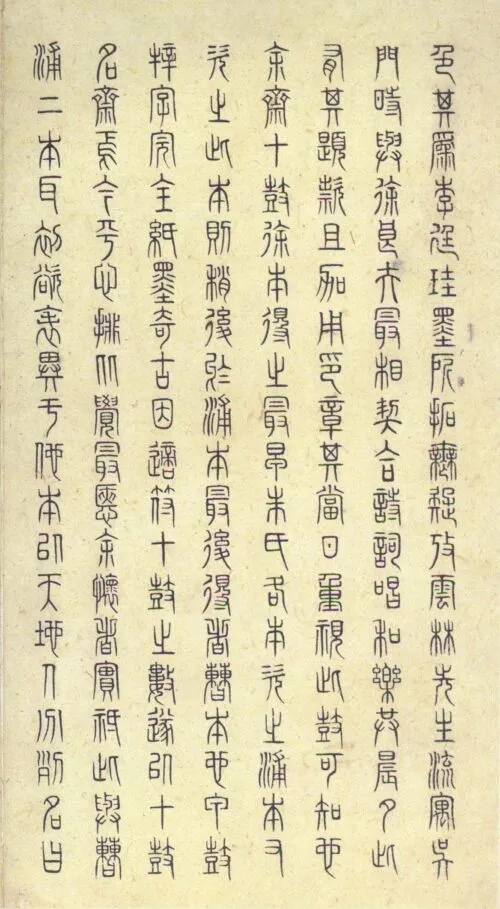 色其爲李廷珪墨所拓無疑攷雲林先生流寓吳
門時與徐良夫最相契合詩詞唱和樂共晨夕此
有其題款且加用印章其當日重視此鼓可知也
余齋十鼓徐本得之最早朱氏各本次之浦本又
次之此本則稍後於浦本最後得者本也中鼓
梓字完全紙墨奇古因適符十鼓之數遂以十鼓
名齋焉今平心排比覺最愜余懷者實祗此與
浦二本耳初欲表異于他本以天地人分別名曰